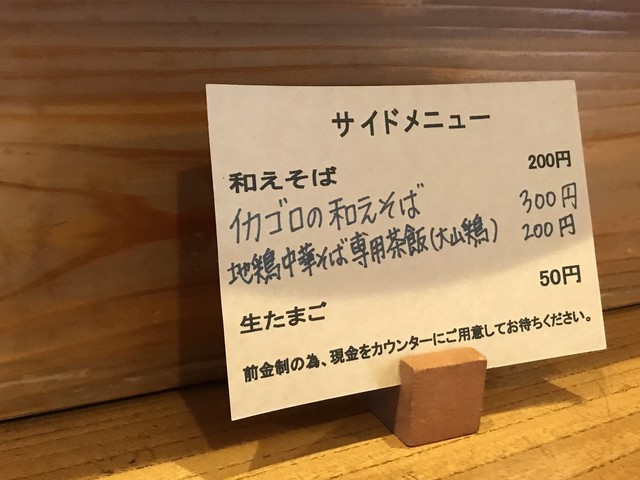 サイドメニュー
和えそば 200円
イカゴロの和えそば 300円
地鶏中華そば専用茶飯(大山鶏) 200円
生たまご 50円
前金制の為、現金をカウンターにご用意してお待ちください。